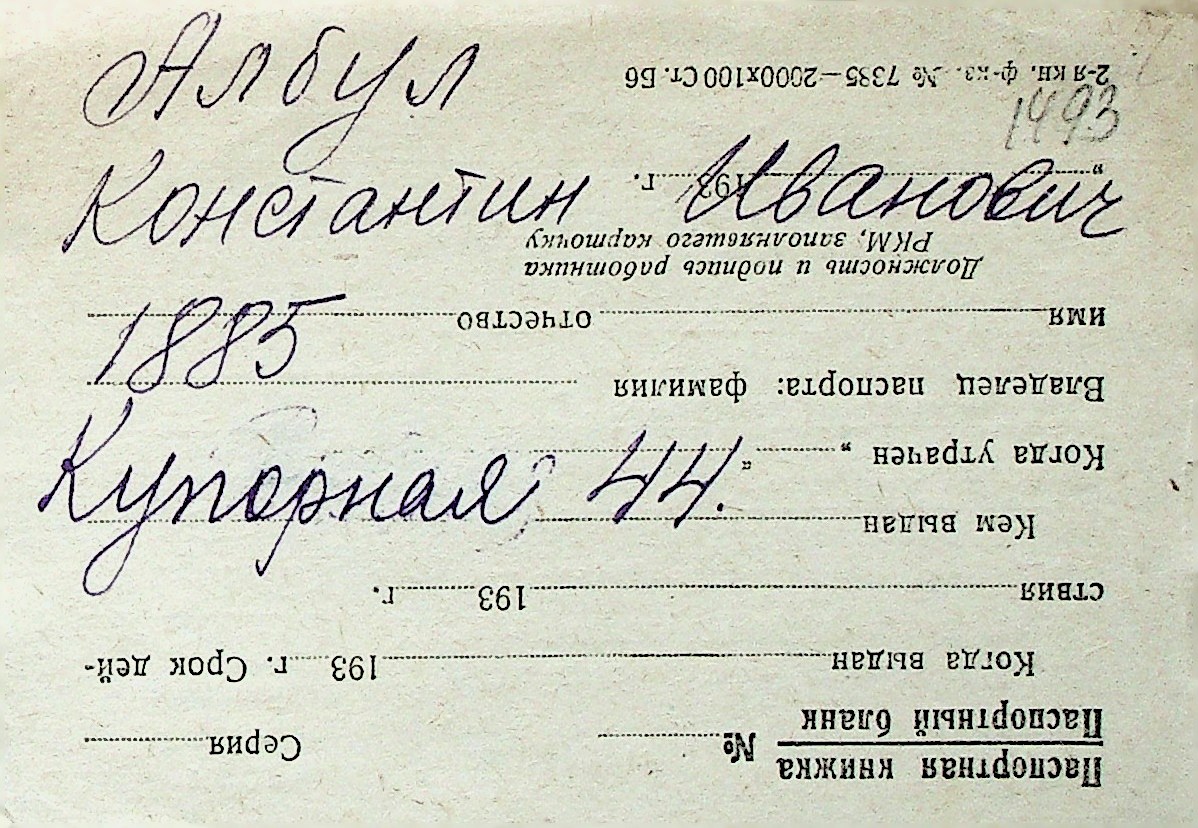 Албул
Константин Иванович
1885
Купорная 44.
1493
Паспортная книжка
Паспортный бланк
№ Серия
Когда выдан 193 г. Срок дей-
ствия 193 г.
Кем выдан
Когда утрачен „ “
Владелец паспорта: фамилия
имя отчество
Должность и подпись работника
РКМ, заполнявшего карточку
„ 193 г.
2-я кн. ф-ка. № 7385—2000х100 Ст. Б6